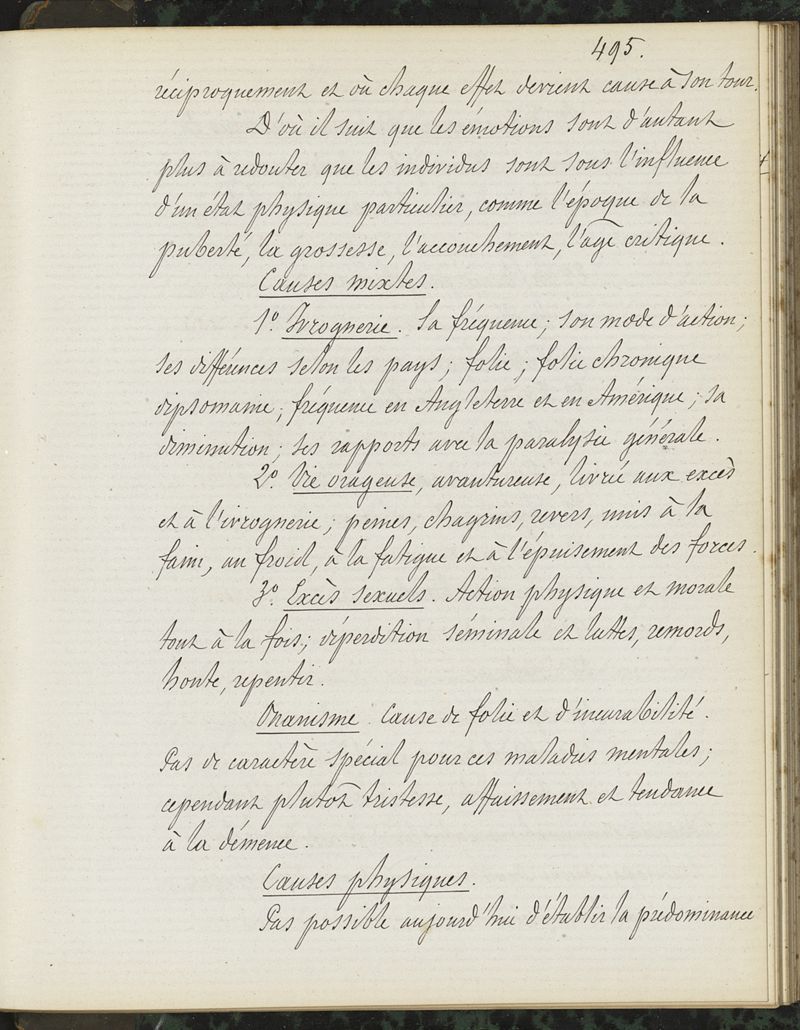 495.
réciproquement et où chaque effet devient cause à son tour.
D'où il suit que les émotions sont d'autant
plus à redouter que les individus sont sous l'influence
d'un état physique particulier, comme l'époque de la
puberté, la grossesse, l'accouchement, l'âge critique.
Causes mixtes.
1º. Ivrognerie. Sa fréquence; son mode d'action;
ses différences selon les pays; folie; folie chronique
dipsomanie; fréquence en Angleterre et en Amérique; sa
diminution; ses rapports avec la paralysie générale.
2º. Vie orageuse, avantureuse, livrée aux excès
et à l'ivrognerie; peines, chagrins, revers, unis à la
faim, au froid, à la fatigue et à l'épuisement des forces.
3º. Excès sexuels. Action physique et morale
tout à la fois; déperdition séminale et luttes, remords,
honte, repentir.
Onanisme. Cause de folie et d'incurabilité.
Pas de caractère spécial pour ces maladies mentales;
cependant plutôt tristesse, affaissement et tendance
à la démence.
Causes physiques.
Pas possible aujourd'hui d'établir la prédominance